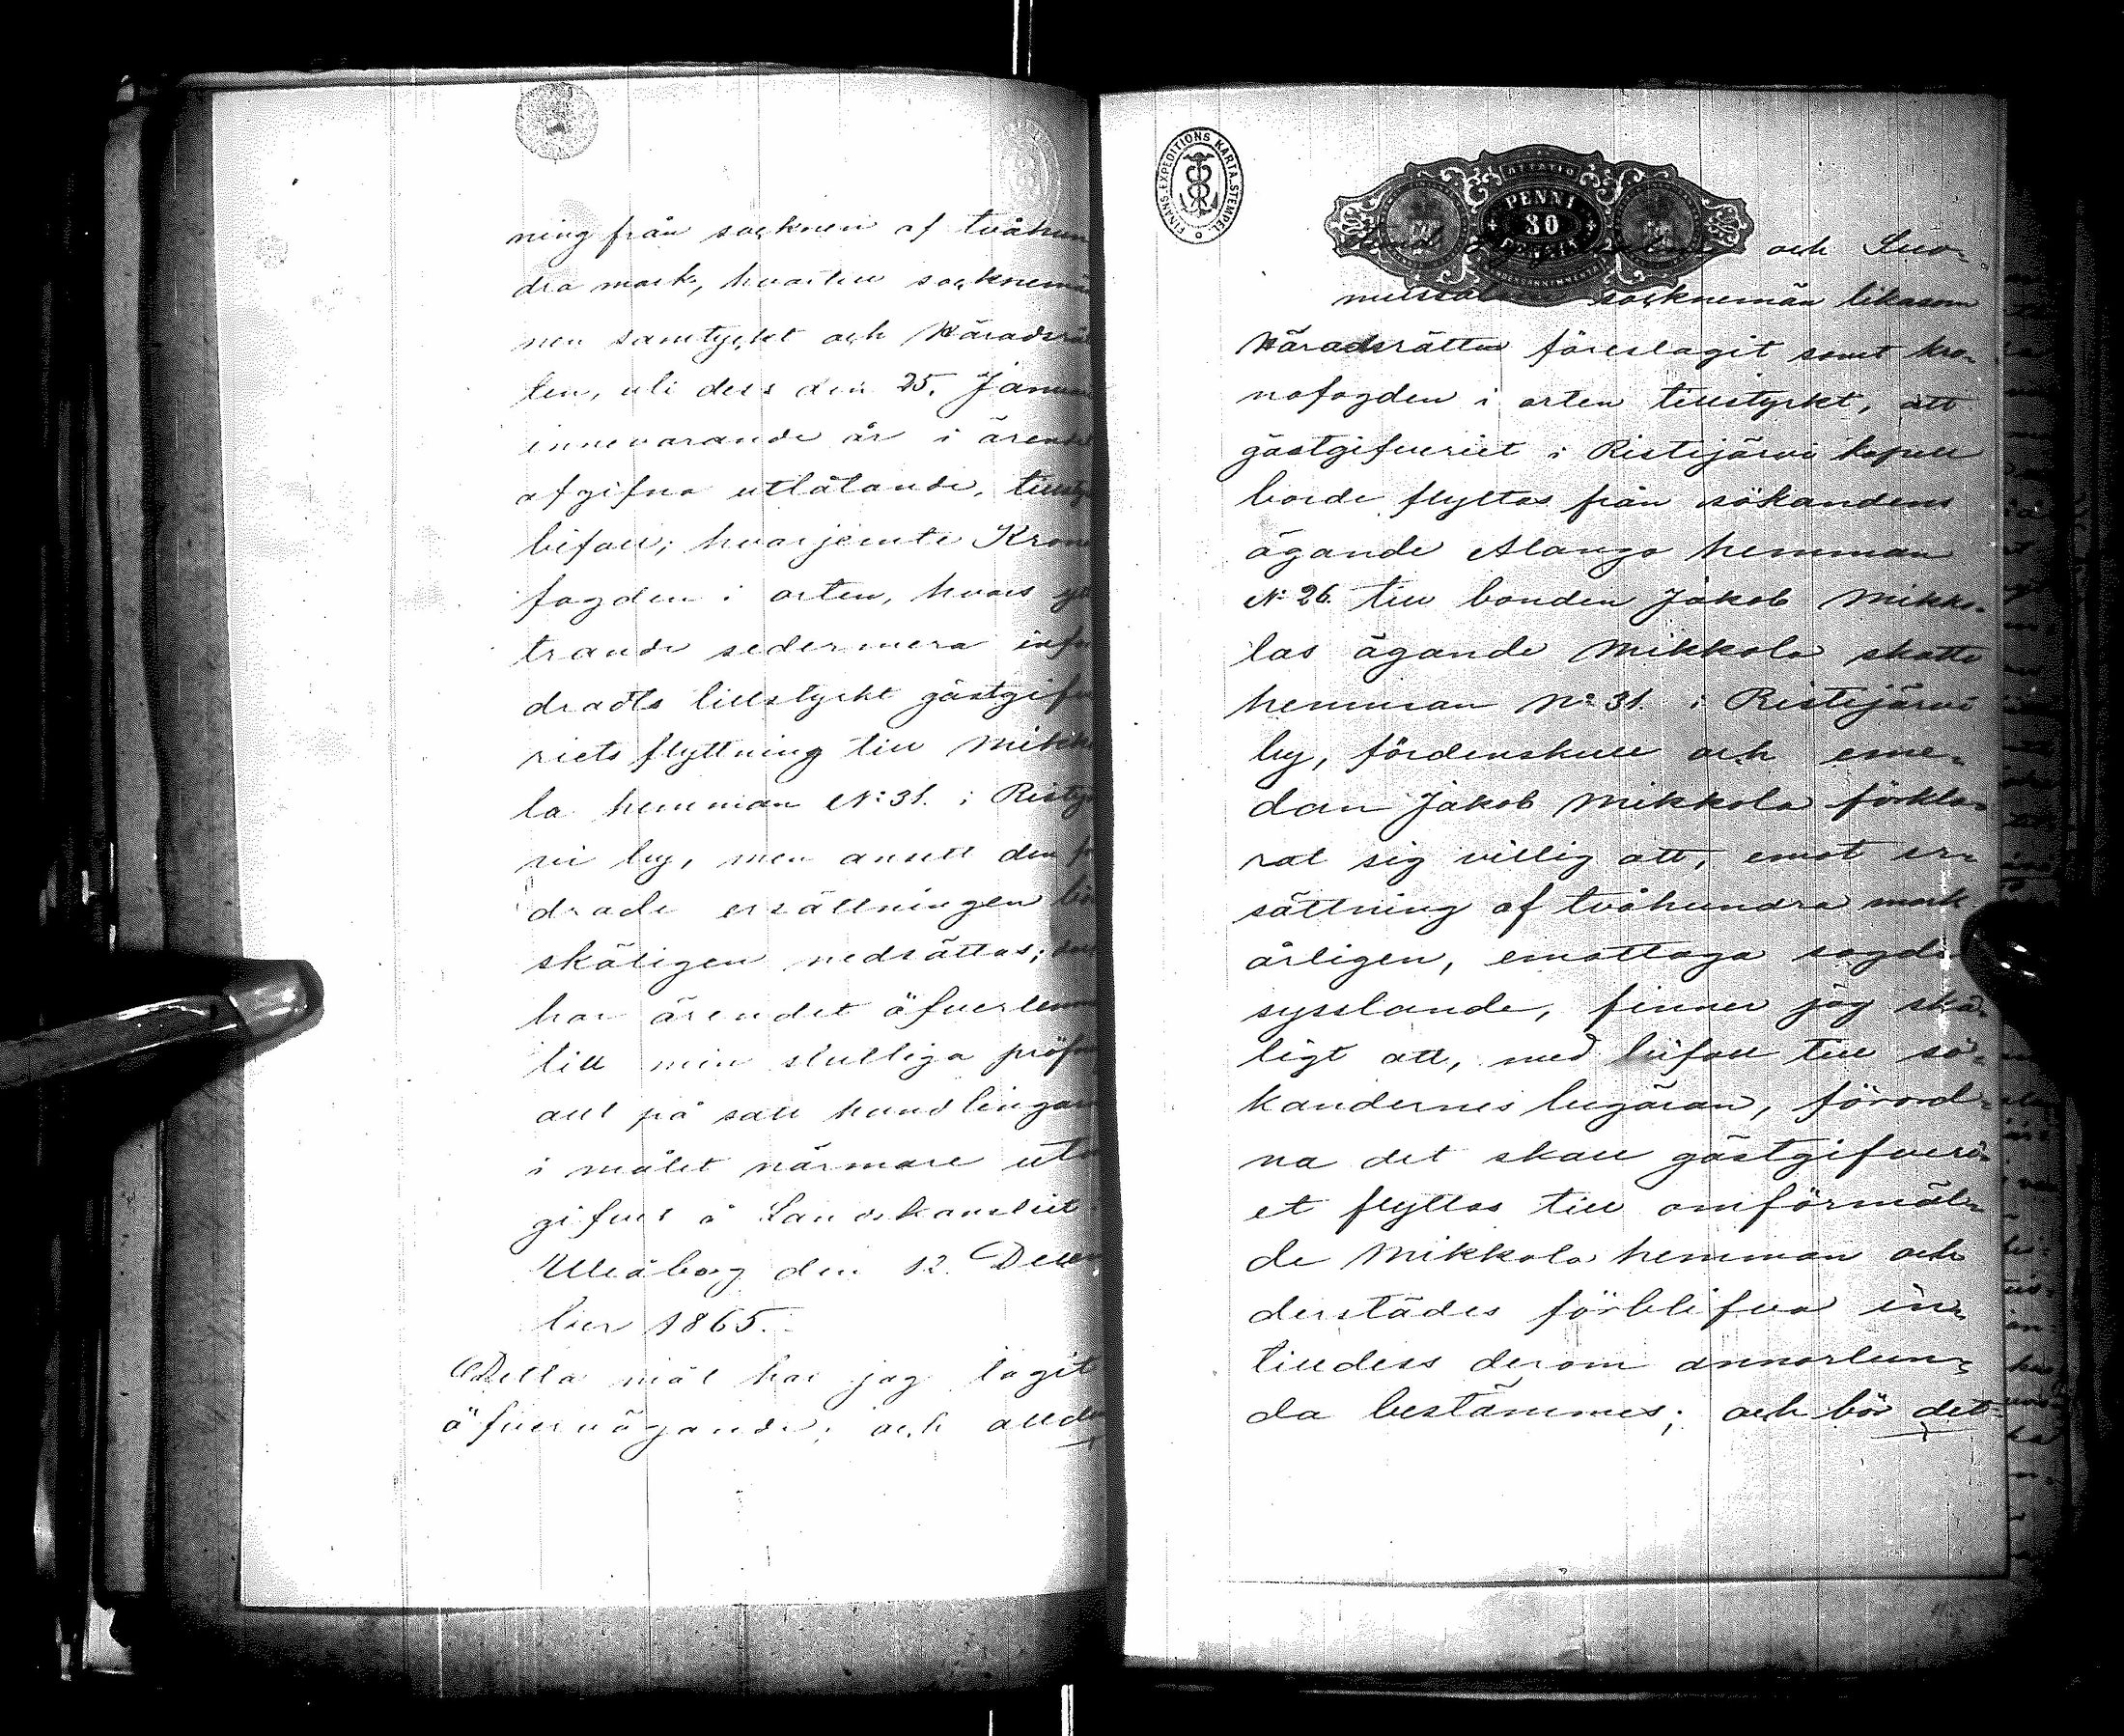 ning från socknen af tvåhun
dra mark, hvartill socknemän
nen samtyckt och Häradsrät
ten, uti dess den 25. Janua
innevarande år i ärendet
afgifna utlåtande, tillsty
bifall; hvarjemte Krono
fogden i orten, hvars yt
trande sedermera infor
drats tillstyrkt gästgifve
riets flyttning till Mikko
la hemman No 31. i Ristijä
vi by, men ansett den for
drade ersättningen bör
skäligen nedsättas;
har ärendet öfverlemn
till min slutliga pröfn
allt på sätt handlingarn
i målet närmare ut
gifves å Landskansliet i
Uleåborg den 12. Decem
ber 1865.
Detta mål har jag tagit
öfvervägande; och alld
FINANS-EXPEDITIONS KARTA-STEMPEL
PENNI
30
och Suo-
mussalmi socknemän likasom
Häradsrätten föreslagit samt kro-
nofogden i orten tillstyrkt, att
gästgifveriet i Ristijärvi kapell
borde flyttas från sökandens
ägande Alanga hemman
No 26. till bonden Jakob Mikko-
las ägande Mikkola skatte
hemman No 31. i Ristijärvi
by, fördenskull och eme-
dan Jakob Mikkola förkla-
rat sig villig att, emot er-
sättning af tvåhundra mark
årligen, emottaga sagde
sysslande, finner jag skä-
ligt att, med bifall till sö-
kandernes begäran, förord-
na det skall gästgifveri-
et flyttas till omförmäl-
de Mikkola hemman och
derstädes förblifva in-
tilldess derom annorlun-
da bestämmes; och bör det-